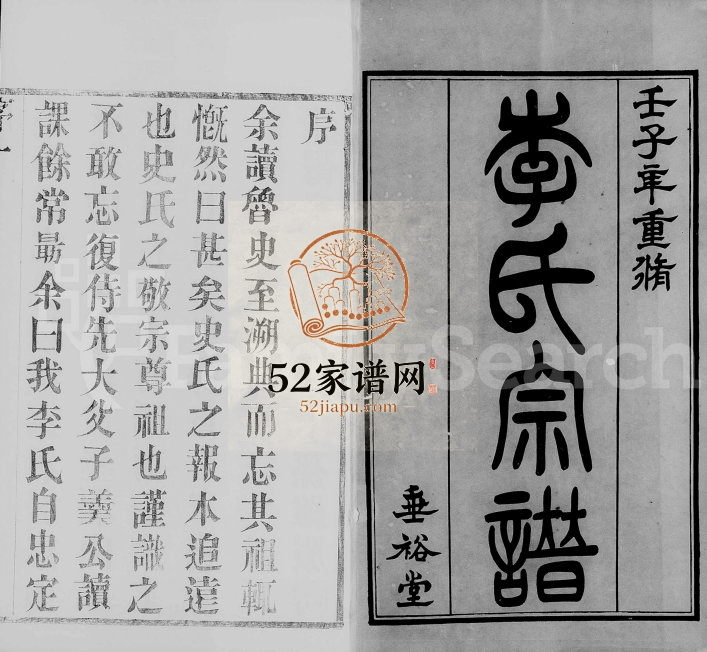 壬子年重脩
李氏宗譜
垂裕堂
序
余讀魯史至溯典而忘其祖輒
慨然曰甚矣史氏之報本追遠
也史氏之敬宗尊祖也謹識之
不敢忘復侍先大父子羙公讀
課餘常勗余曰我李氏自忠定
52家谱网
52jiapu.com
FamilySearch